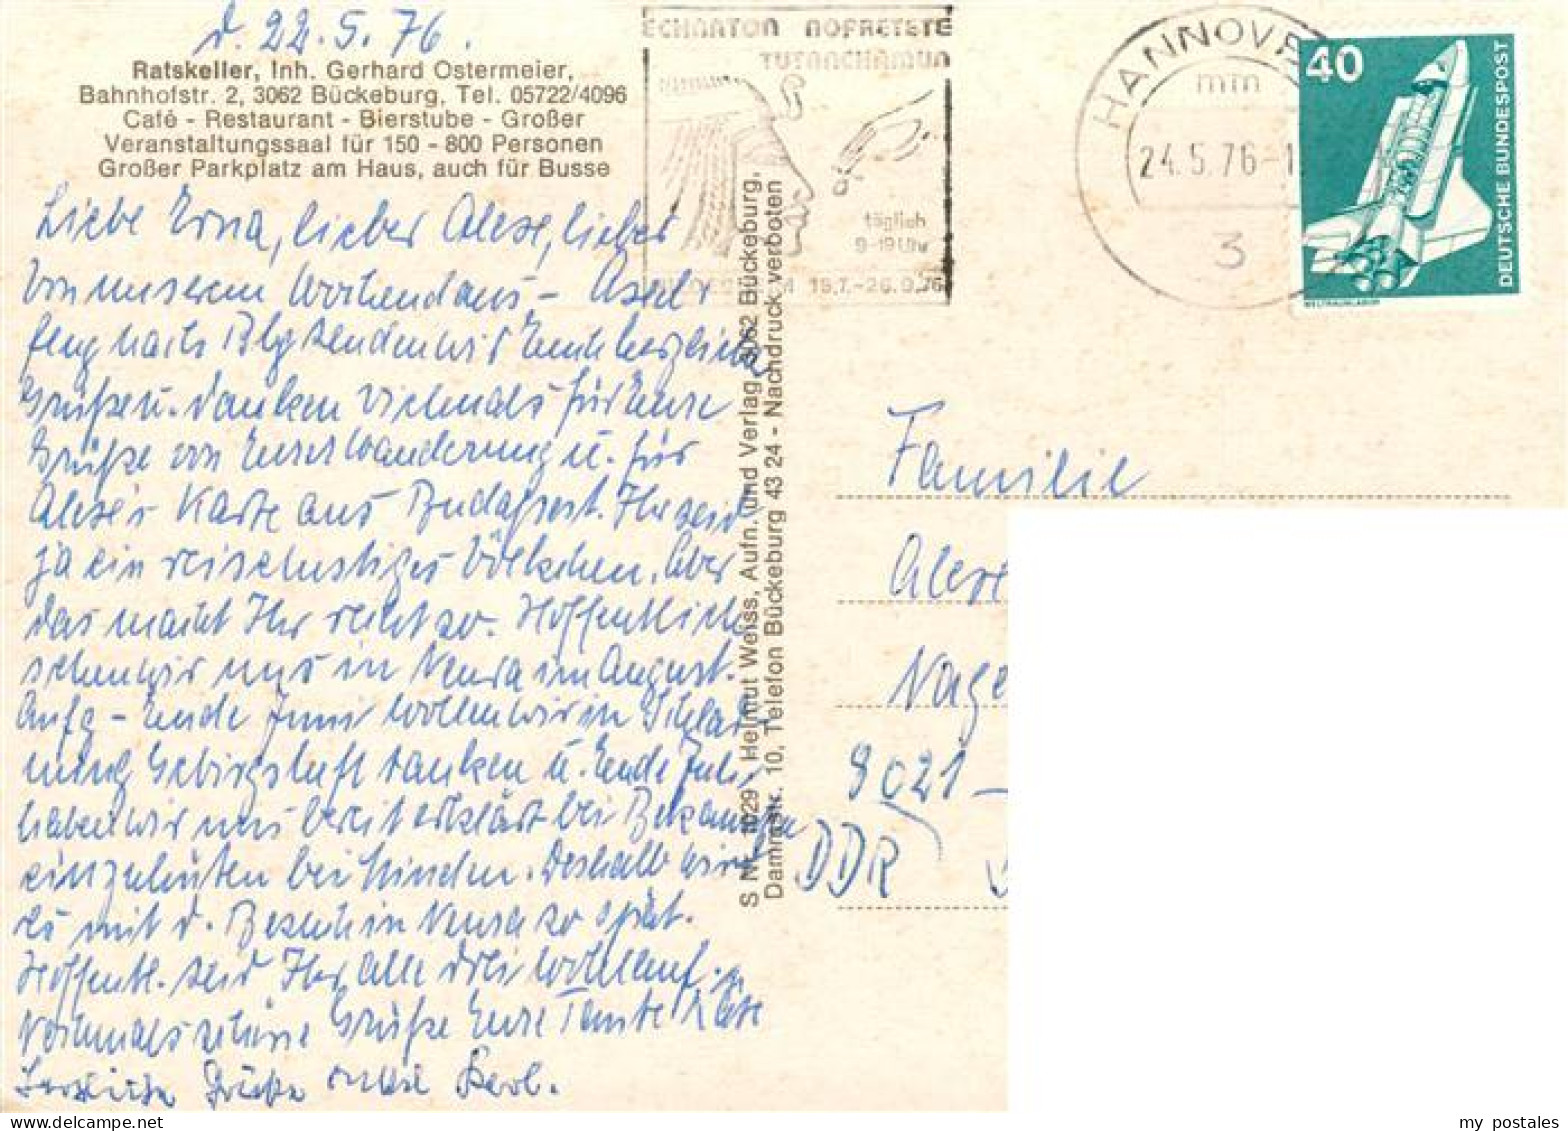 d. 22.5.76.
Ratskeller, Inh. Gerhard Ostermeier,
Bahnhofstr. 2, 3062 Bückeburg, Tel. 05722/4096
Café - Restaurant - Bierstube - Großer
Veranstaltungssaal für 150 - 800 Personen
Großer Parkplatz am Haus, auch für Busse
Liebe Erna, lieber
Von unserem
wir Euch herzliche
Grüße u. danken vielmals für Eure
Grüße von Eurer Wanderung u. für
Karte aus Budapest. Ihr seid
ja ein reiselustiges Völkchen. Aber
das macht Ihr recht so. Hoffentlich
sehen wir uns in im August.
Anfg - Ende Juni wollen wir in
Gebirgsluft tanken u. Ende Juli
haben wir uns bereit erklärt bei Bekannten
einzuhüten bei Minden. Deshalb wird
es mit d. Besuch in so spät.
Hoffentl. seid Ihr alle drei wohlauf.
Nochmals schöne Grüße Eure Tante Käte
Herzliche Grüße
S Nr. 1029 Helmut Weiss, Aufn. und Verlag, 3062 Bückeburg,
Dammstr. 10, Telefon Bückeburg 43 24 - Nachdruck verboten
ECHNATON NOFRETETE
TUTANCHAMUN
täglich
9-19 Uhr
19.7.-26.9.76
HANNOVER
mm
24.5.76-1
3
40
DEUTSCHE BUNDESPOST
WELTRAUMLABOR
Familie
9021 -
DDR
my postales